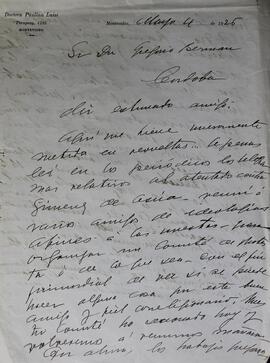 Doctora Paulina Luisi
Paraguay, 1286
MONTEVIDEO
Montevideo, Mayo 4 de 1926
Sr. Dr. Gregorio Berman
Cordoba
Mi estimado amigo:
Aquí me tiene nuevamente
metida en revueltas. Apenas
leí en los periódicos los telegra
mas relativos al atentado contra
Gimenez de Asúa, reuní á
varios amigos de ideologías
afines á las nuestras para
organizar un Comité de protes
ta á de lo que sea con el fin
primordial de ver si se puede
hacer alguna cosa por este buen
amigo y fiel correligionario.
Comité ha sesionado hoy y
volveremos á reunirnos
los trabajos